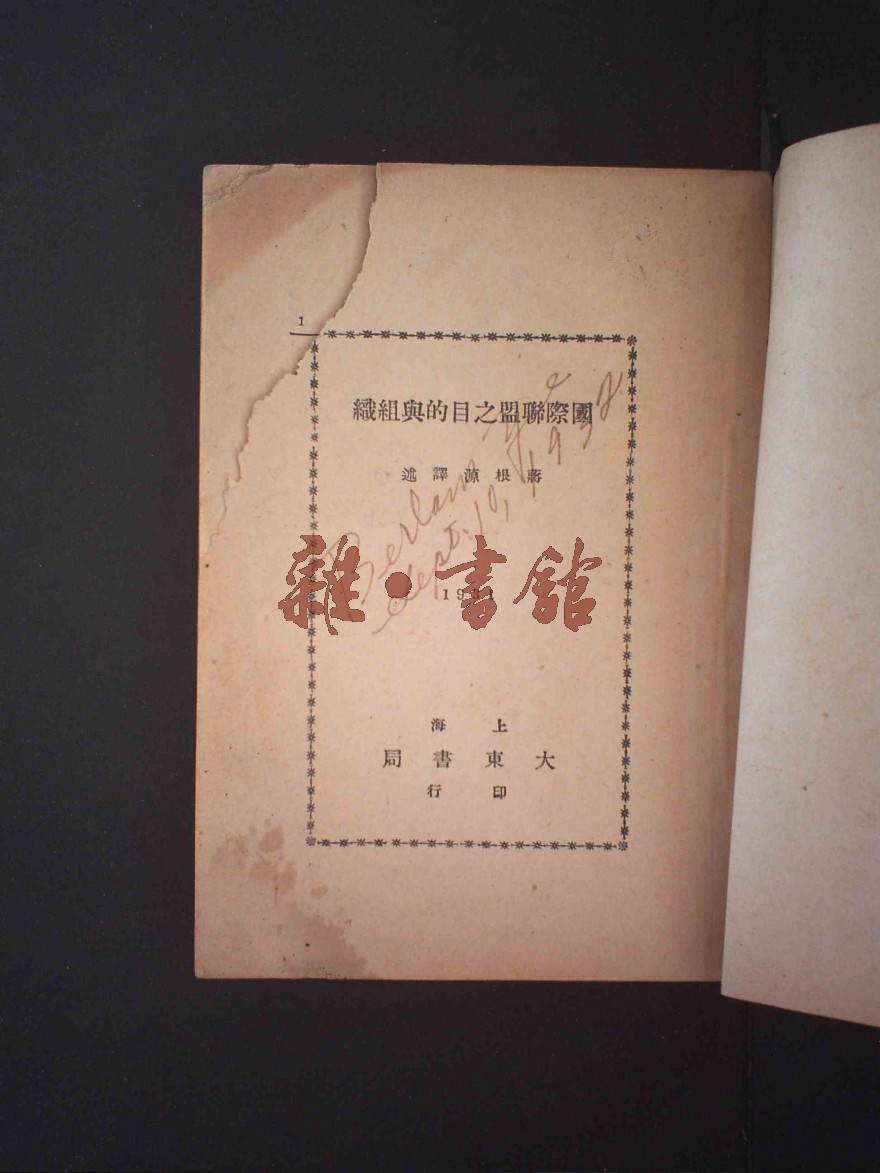 1
國際聯盟之目的與組織
蔣根源譯述
Sept. 10, 1932
雜·書館
1931
上海
大東書局
印行